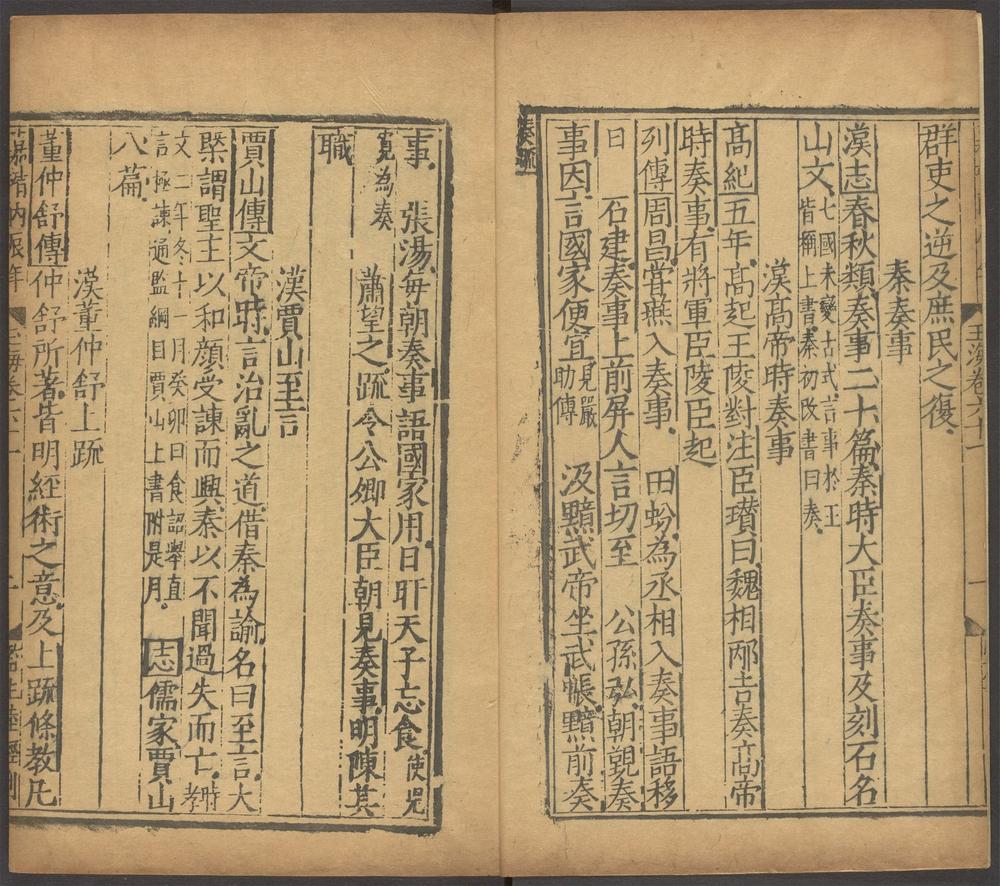 玉海卷六十一
群吏之逆及庶民之復
秦奏事
漢志春秋類奏事二十篇秦時大臣奏事及刻石名
山文七國未變古式言事於王皆稱上書秦初改書曰奏
漢高帝時奏事
高紀五年高起王陵對注臣瓚曰魏相邴吉奏高帝
時奏事有將軍臣陵臣起
列傳周昌嘗燕入奏事 田蚡為丞相入奏事語移
日 石建奏事上前屏人言切至 公孫弘朝覲奏
事因言國家便宜見嚴助傳 汲黯武帝坐武帳黯前奏
奏疏
事 張湯每朝奏事語國家用日旰天子忘食使兒
寬為奏 蕭望之疏令公卿大臣朝見奏事明陳其
職
漢賈山至言
賈山傳文帝時言治亂之道借秦為諭名曰至言大
槩謂聖主以和顏受諫而興秦以不聞過失而亡時孝
文二年冬十一月癸卯日食詔舉直言極諫通鑑綱目賈山上書附是月 志儒家賈山
八篇
漢董仲舒上疏
董仲舒傳仲舒所著皆明經術之意及上疏條教凡
玉海卷六十一